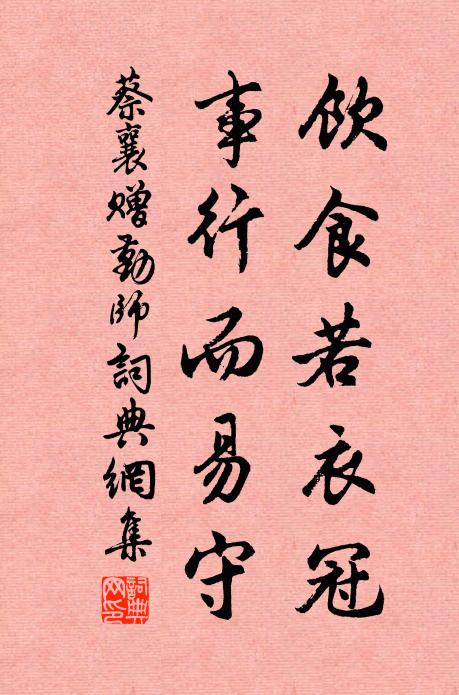 飲食若衣冠
事行而易守
蔡襄贈勤師詞典網集
詞典網印